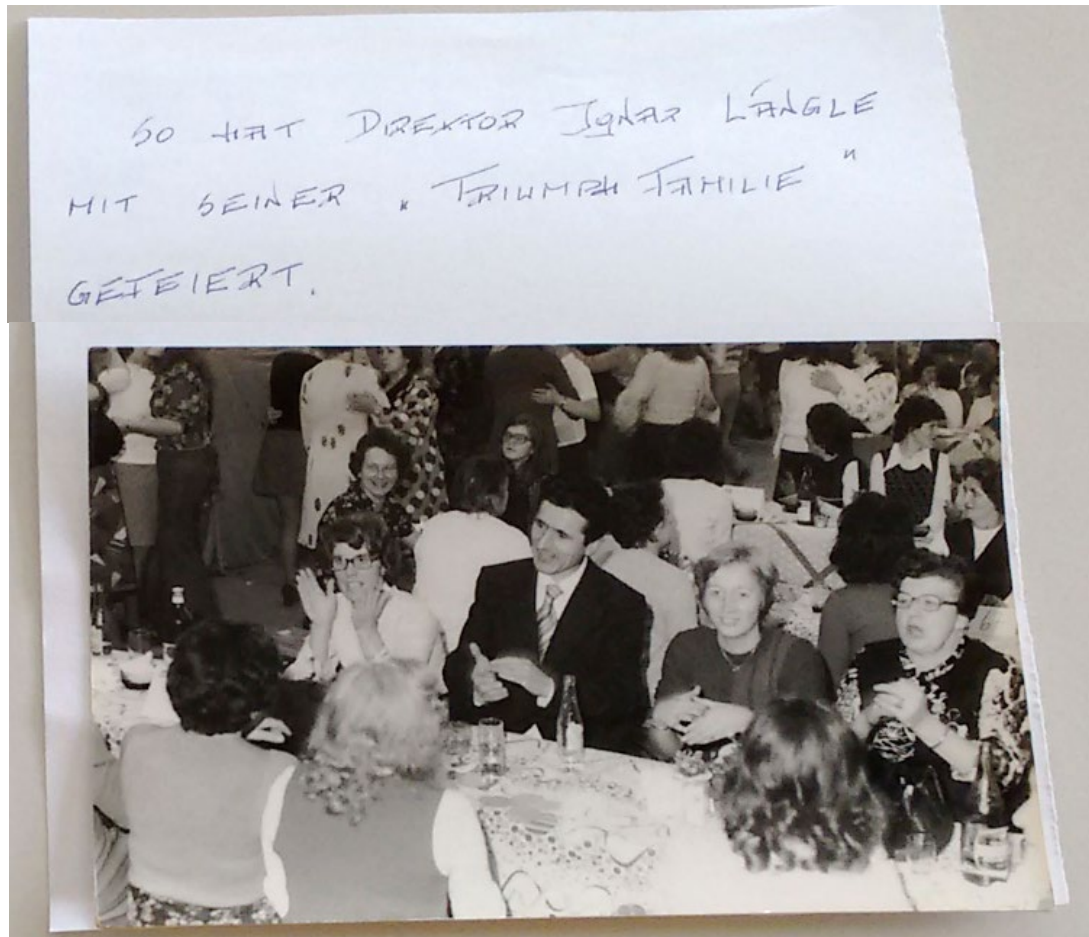 SO HAT DIREKTOR IGNAZ LÄNGLE
MIT SEINER „TRIUMPH FAMILIE"
GEFEIERT.